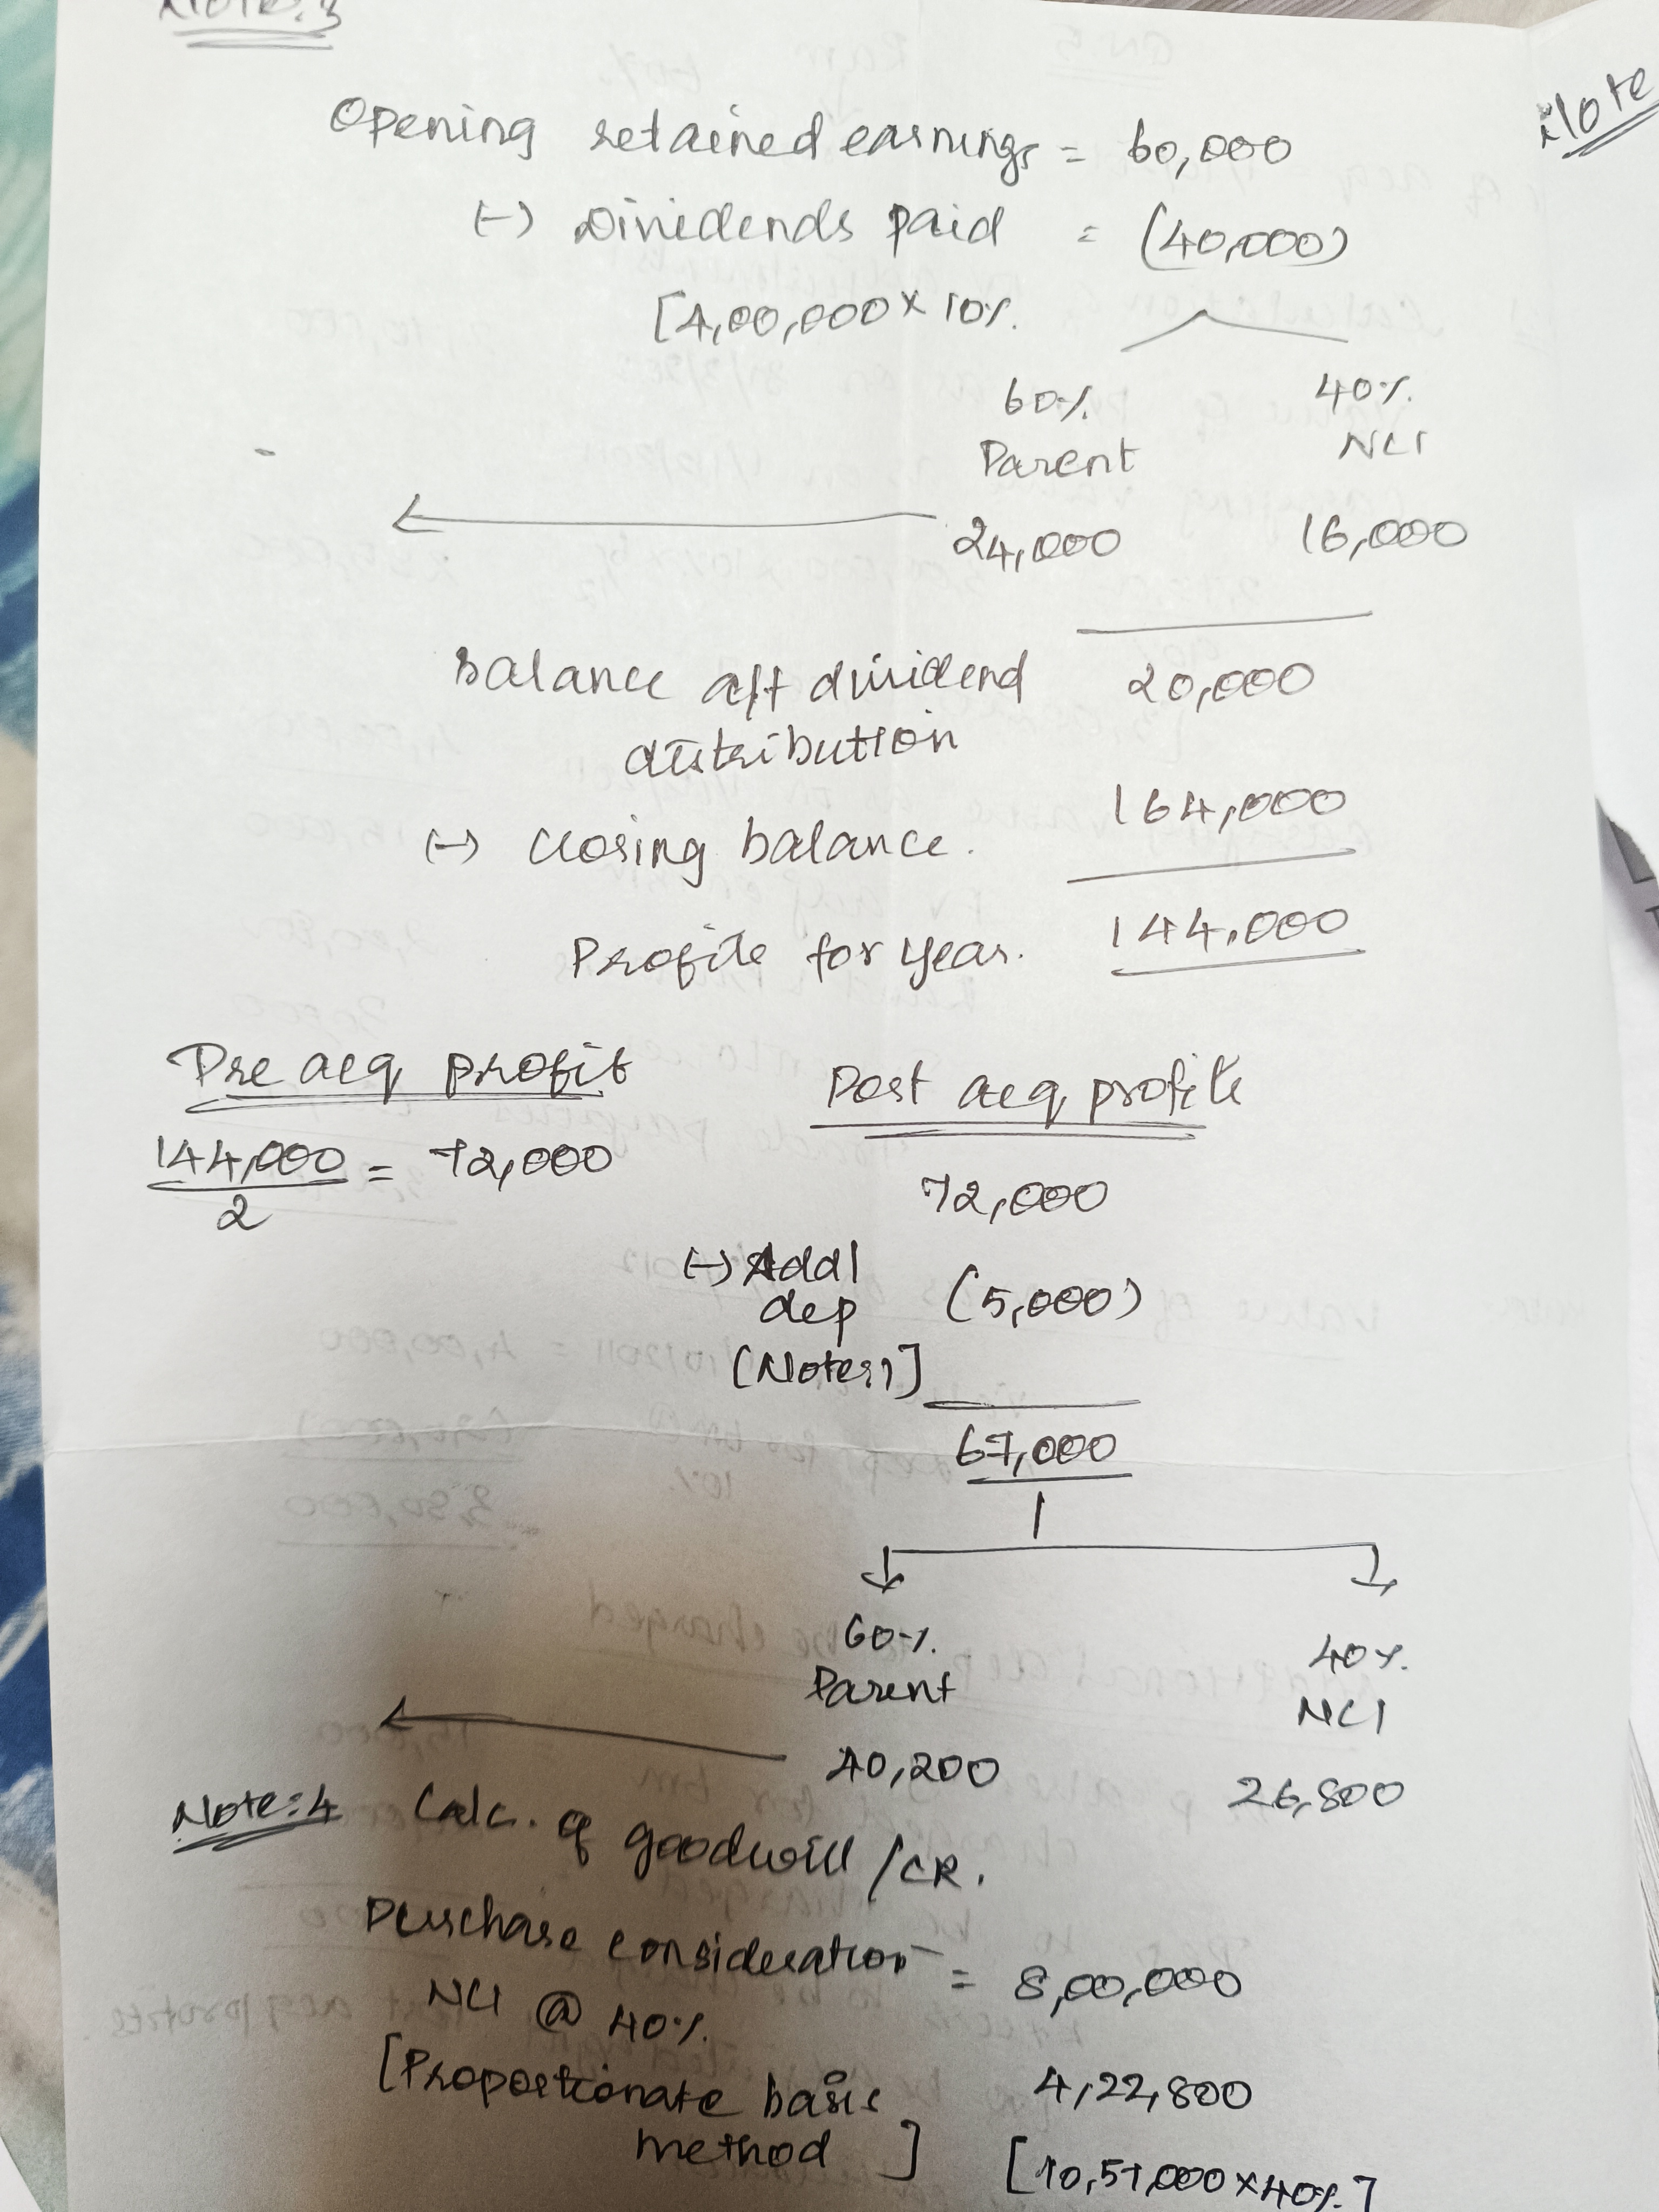 Note: 3
Note
Opening retained earnings = 60,000
(-) Dividends paid = (40,000)
[4,00,000 x 10%.
60% 40%.
Parent NCI
24,000 16,000
Balance aft dividend 20,000
distribution
164,000
(-) Closing balance.
Profits for year. 144,000
Pre acq profit Post acq profits
144,000 / 2 = 72,000
72,000
(-) Addl
dep (5,000)
[Notes1]
67,000
60%. 40%.
Parent NCI
40,200 26,800
Note: 4 Calc. of goodwill / CR.
Purchase consideration = 8,00,000
NCI @ 40%.
[Proportionate basis 4,22,800
method ] [10,57,000 x 40%.]